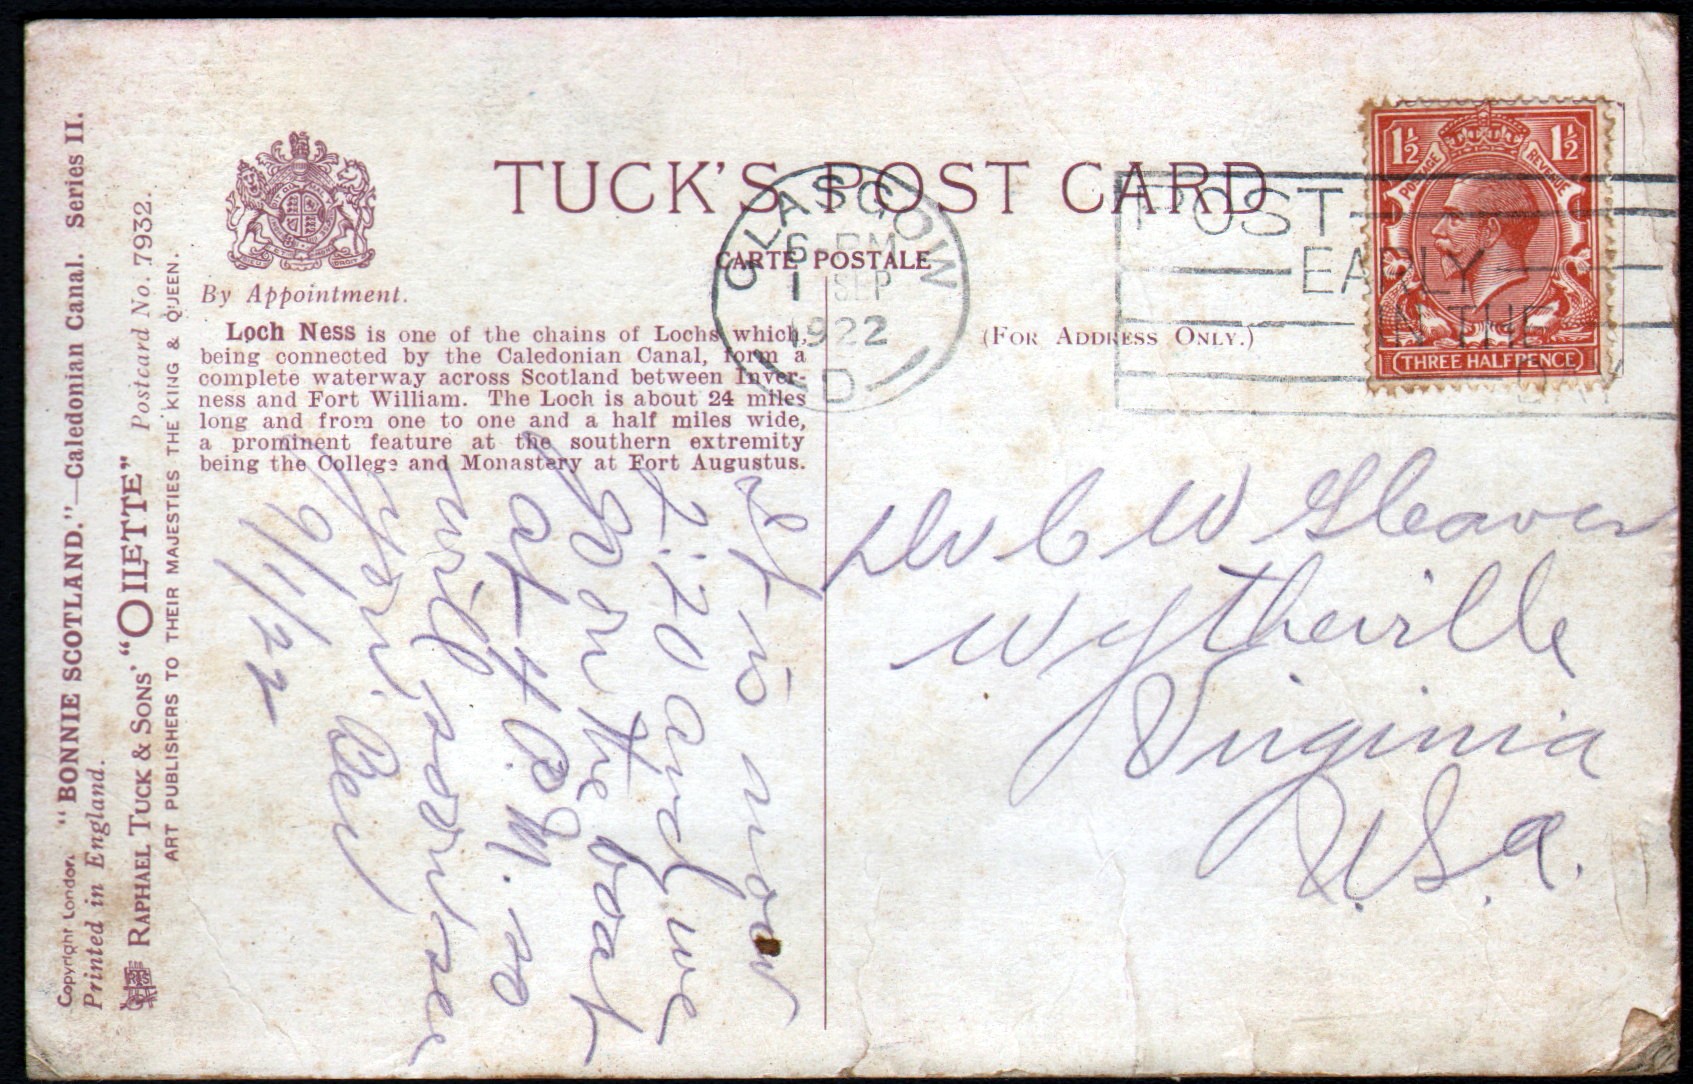 TUCK'S POST CARD
CARTE POSTALE
By Appointment.
(For Address Only.)
Loch Ness is one of the chains of Lochs which,
being connected by the Caledonian Canal, form a
complete waterway across Scotland between Inver-
ness and Fort William. The Loch is about 24 miles
long and from one to one and a half miles wide,
a prominent feature at the southern extremity
being the College and Monastery at Fort Augustus.
GLASGOW
6-PM
1 SEP
1922
D
POST
EARLY
IN THE
DAY
1½ 1½
POSTAGE REVENUE
THREE HALFPENCE
Copyright London. "BONNIE SCOTLAND."—Caledonian Canal. Series II.
Printed in England.
RAPHAEL TUCK & SONS' "OILETTE" Postcard No. 7932.
ART PUBLISHERS TO THEIR MAJESTIES THE KING & QUEEN.
It is now
2:20 and we
go on the boat
at 4 P.M. so
will
9/1/22
Dr C W Gleaves
Wytheville
Virginia
U.S.a.